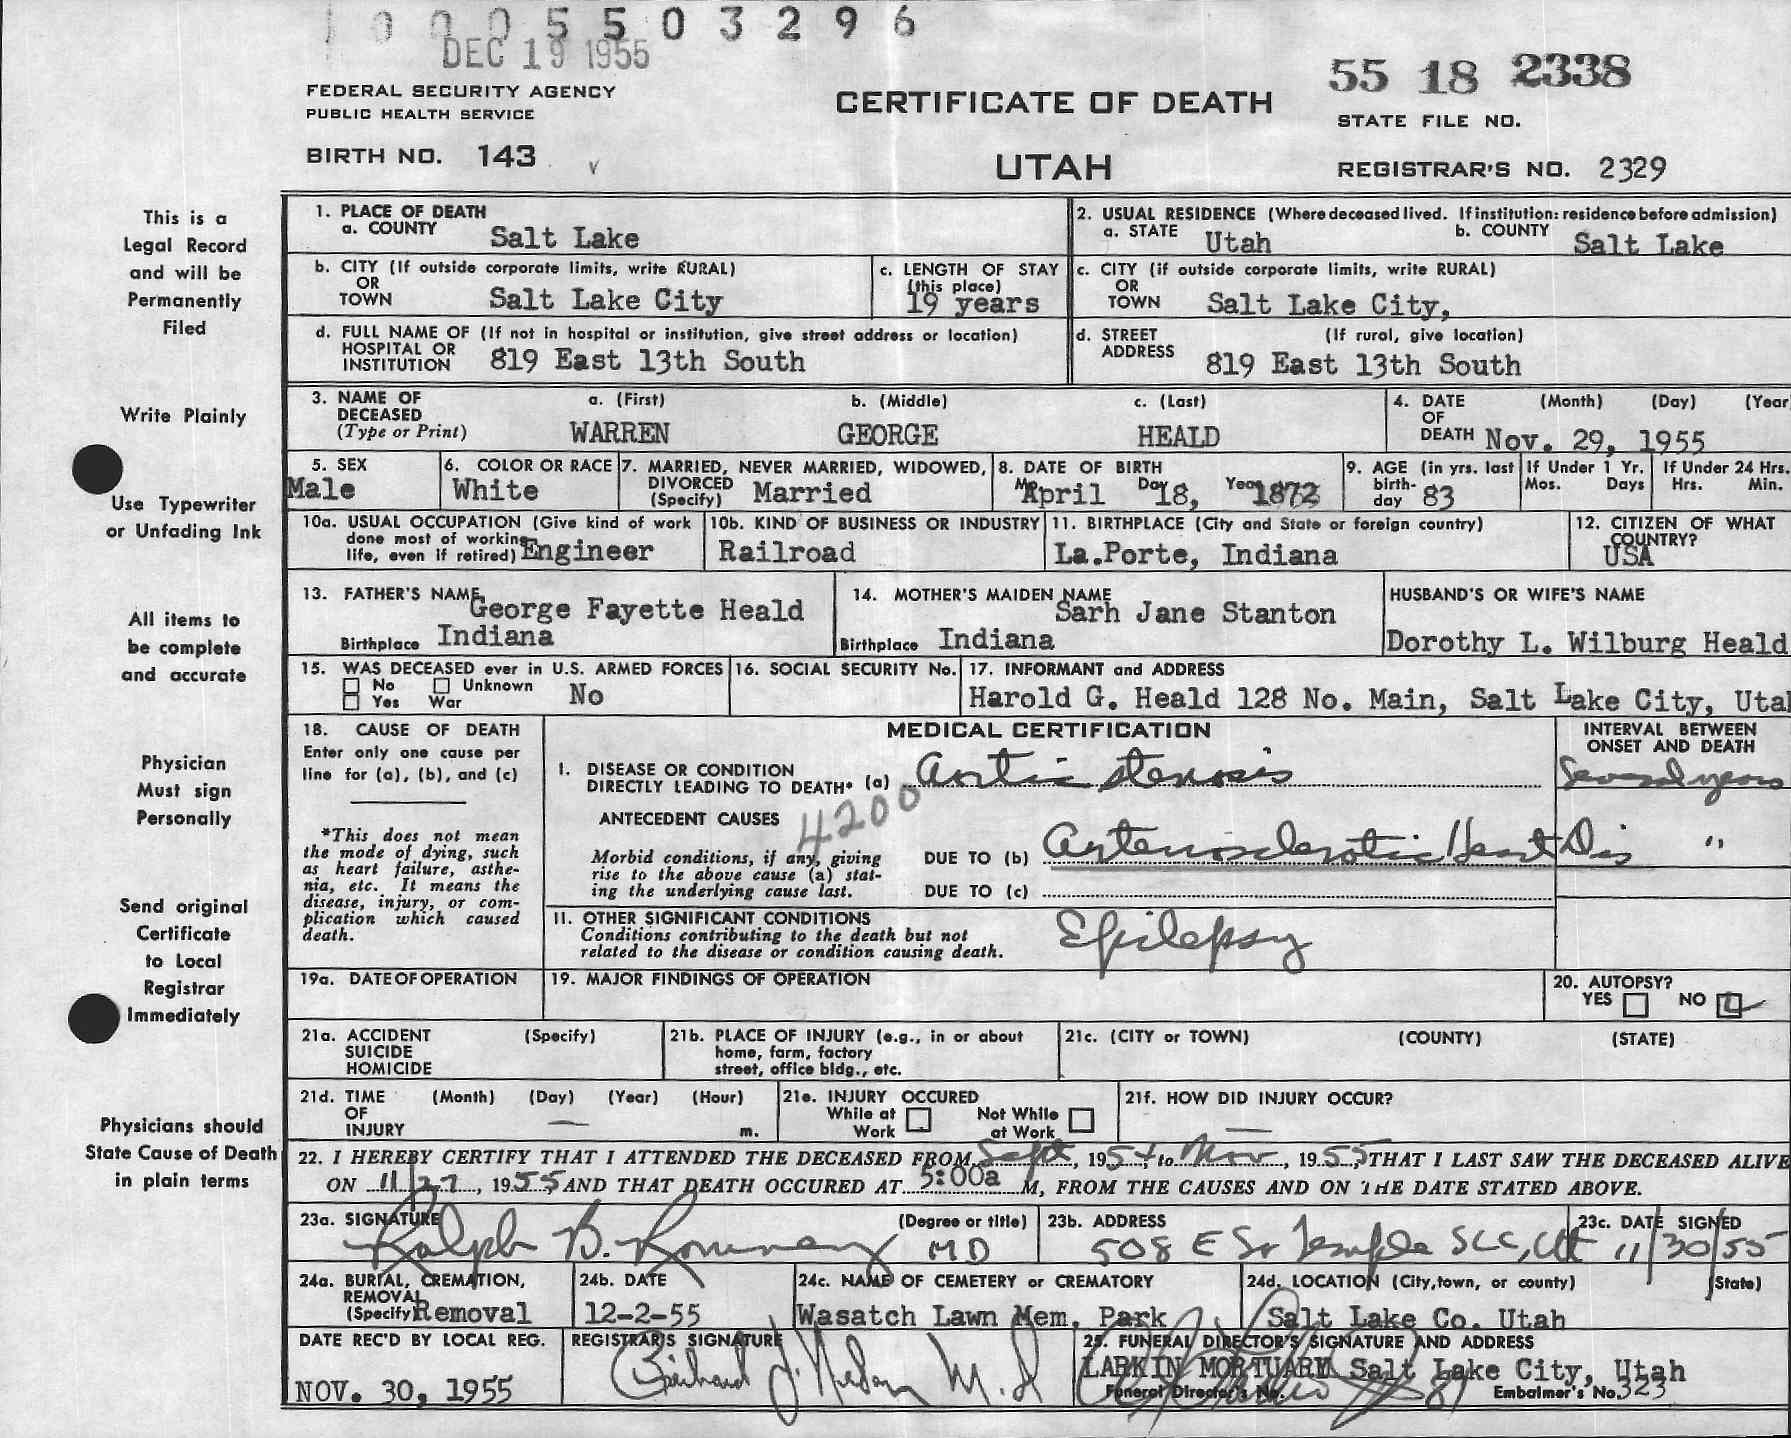 1 0 0 0 5 5 0 3 2 9 6
DEC 19 1955
FEDERAL SECURITY AGENCY
PUBLIC HEALTH SERVICE
BIRTH NO. 143
CERTIFICATE OF DEATH
UTAH
55 18 2338
STATE FILE NO.
REGISTRAR'S NO. 2329
This is a
Legal Record
and will be
Permanently
Filed
Write Plainly
Use Typewriter
or Unfading Ink
All items to
be complete
and accurate
Physician
Must sign
Personally
Send original
Certificate
to Local
Registrar
Immediately
Physicians should
State Cause of Death
in plain terms
1. PLACE OF DEATH
a. COUNTY Salt Lake
2. USUAL RESIDENCE (Where deceased lived. If institution: residence before admission)
a. STATE Utah b. COUNTY Salt Lake
b. CITY (If outside corporate limits, write RURAL)
OR
TOWN Salt Lake City
c. LENGTH OF STAY
(this place)
19 years
c. CITY (if outside corporate limits, write RURAL)
OR
TOWN Salt Lake City,
d. FULL NAME OF (If not in hospital or institution, give street address or location)
HOSPITAL OR
INSTITUTION 819 East 13th South
d. STREET (If rural, give location)
ADDRESS
819 East 13th South
3. NAME OF
DECEASED
(Type or Print)
a. (First) b. (Middle) c. (Last)
WARREN GEORGE HEALD
4. DATE (Month) (Day) (Year
OF
DEATH Nov. 29, 1955
5. SEX
Male
6. COLOR OR RACE
White
7. MARRIED, NEVER MARRIED, WIDOWED,
DIVORCED
(Specify) Married
8. DATE OF BIRTH
April Day 18, Year 1872
9. AGE (in yrs. last
birth-
day 83
If Under 1 Yr.
Mos. Days
If Under 24 Hrs.
Hrs. Min.
10a. USUAL OCCUPATION (Give kind of work
done most of working
life, even if retired) Engineer
10b. KIND OF BUSINESS OR INDUSTRY
Railroad
11. BIRTHPLACE (City and State or foreign country)
La.Porte, Indiana
12. CITIZEN OF WHAT
COUNTRY?
USA
13. FATHER'S NAME
George Fayette Heald
Birthplace Indiana
14. MOTHER'S MAIDEN NAME
Sarh Jane Stanton
Birthplace Indiana
HUSBAND'S OR WIFE'S NAME
Dorothy L. Wilburg Heald
15. WAS DECEASED ever in U.S. ARMED FORCES
No Unknown No
Yes War
16. SOCIAL SECURITY No.
17. INFORMANT and ADDRESS
Harold G. Heald 128 No. Main, Salt Lake City, Utah
18. CAUSE OF DEATH
Enter only one cause per
line for (a), (b), and (c)
*This does not mean
the mode of dying, such
as heart failure, asthe-
nia, etc. It means the
disease, injury, or com-
plication which caused
death.
MEDICAL CERTIFICATION
I. DISEASE OR CONDITION
DIRECTLY LEADING TO DEATH* (a) Aortic stenosis
INTERVAL BETWEEN
ONSET AND DEATH
Several years
4200
ANTECEDENT CAUSES
Morbid conditions, if any, giving
rise to the above cause (a) stat-
ing the underlying cause last.
DUE TO (b) Arteriosclerotic Heart Dis "
DUE TO (c)
II. OTHER SIGNIFICANT CONDITIONS
Conditions contributing to the death but not
related to the disease or condition causing death.
Epilepsy
19a. DATE OF OPERATION
19. MAJOR FINDINGS OF OPERATION
20. AUTOPSY?
YES NO
21a. ACCIDENT (Specify)
SUICIDE
HOMICIDE
21b. PLACE OF INJURY (e.g., in or about
home, farm, factory
street, office bldg., etc.
21c. (CITY or TOWN) (COUNTY) (STATE)
21d. TIME (Month) (Day) (Year) (Hour)
OF
INJURY — m.
21e. INJURY OCCURED
While at Not While
Work at Work
21f. HOW DID INJURY OCCUR?
—
22. I HEREBY CERTIFY THAT I ATTENDED THE DECEASED FROM Sept, 1954, to Nov, 1955, THAT I LAST SAW THE DECEASED ALIVE
ON 11/27, 1955, AND THAT DEATH OCCURED AT 5:00a M, FROM THE CAUSES AND ON THE DATE STATED ABOVE.
23a. SIGNATURE (Degree or title)
Ralph B. Romney MD
23b. ADDRESS
508 E So Temple SLC, Ut
23c. DATE SIGNED
11/30/55
24a. BURIAL, CREMATION,
REMOVAL
(Specify) Removal
24b. DATE
12-2-55
24c. NAME OF CEMETERY or CREMATORY
Wasatch Lawn Mem. Park
24d. LOCATION (City, town, or county) (State)
Salt Lake Co. Utah
DATE REC'D BY LOCAL REG.
NOV. 30, 1955
REGISTRAR'S SIGNATURE
M.D
25. FUNERAL DIRECTOR'S SIGNATURE AND ADDRESS
LARKIN MORTUARY Salt Lake City, Utah
Funeral Director's No. Embalmer's No. 323